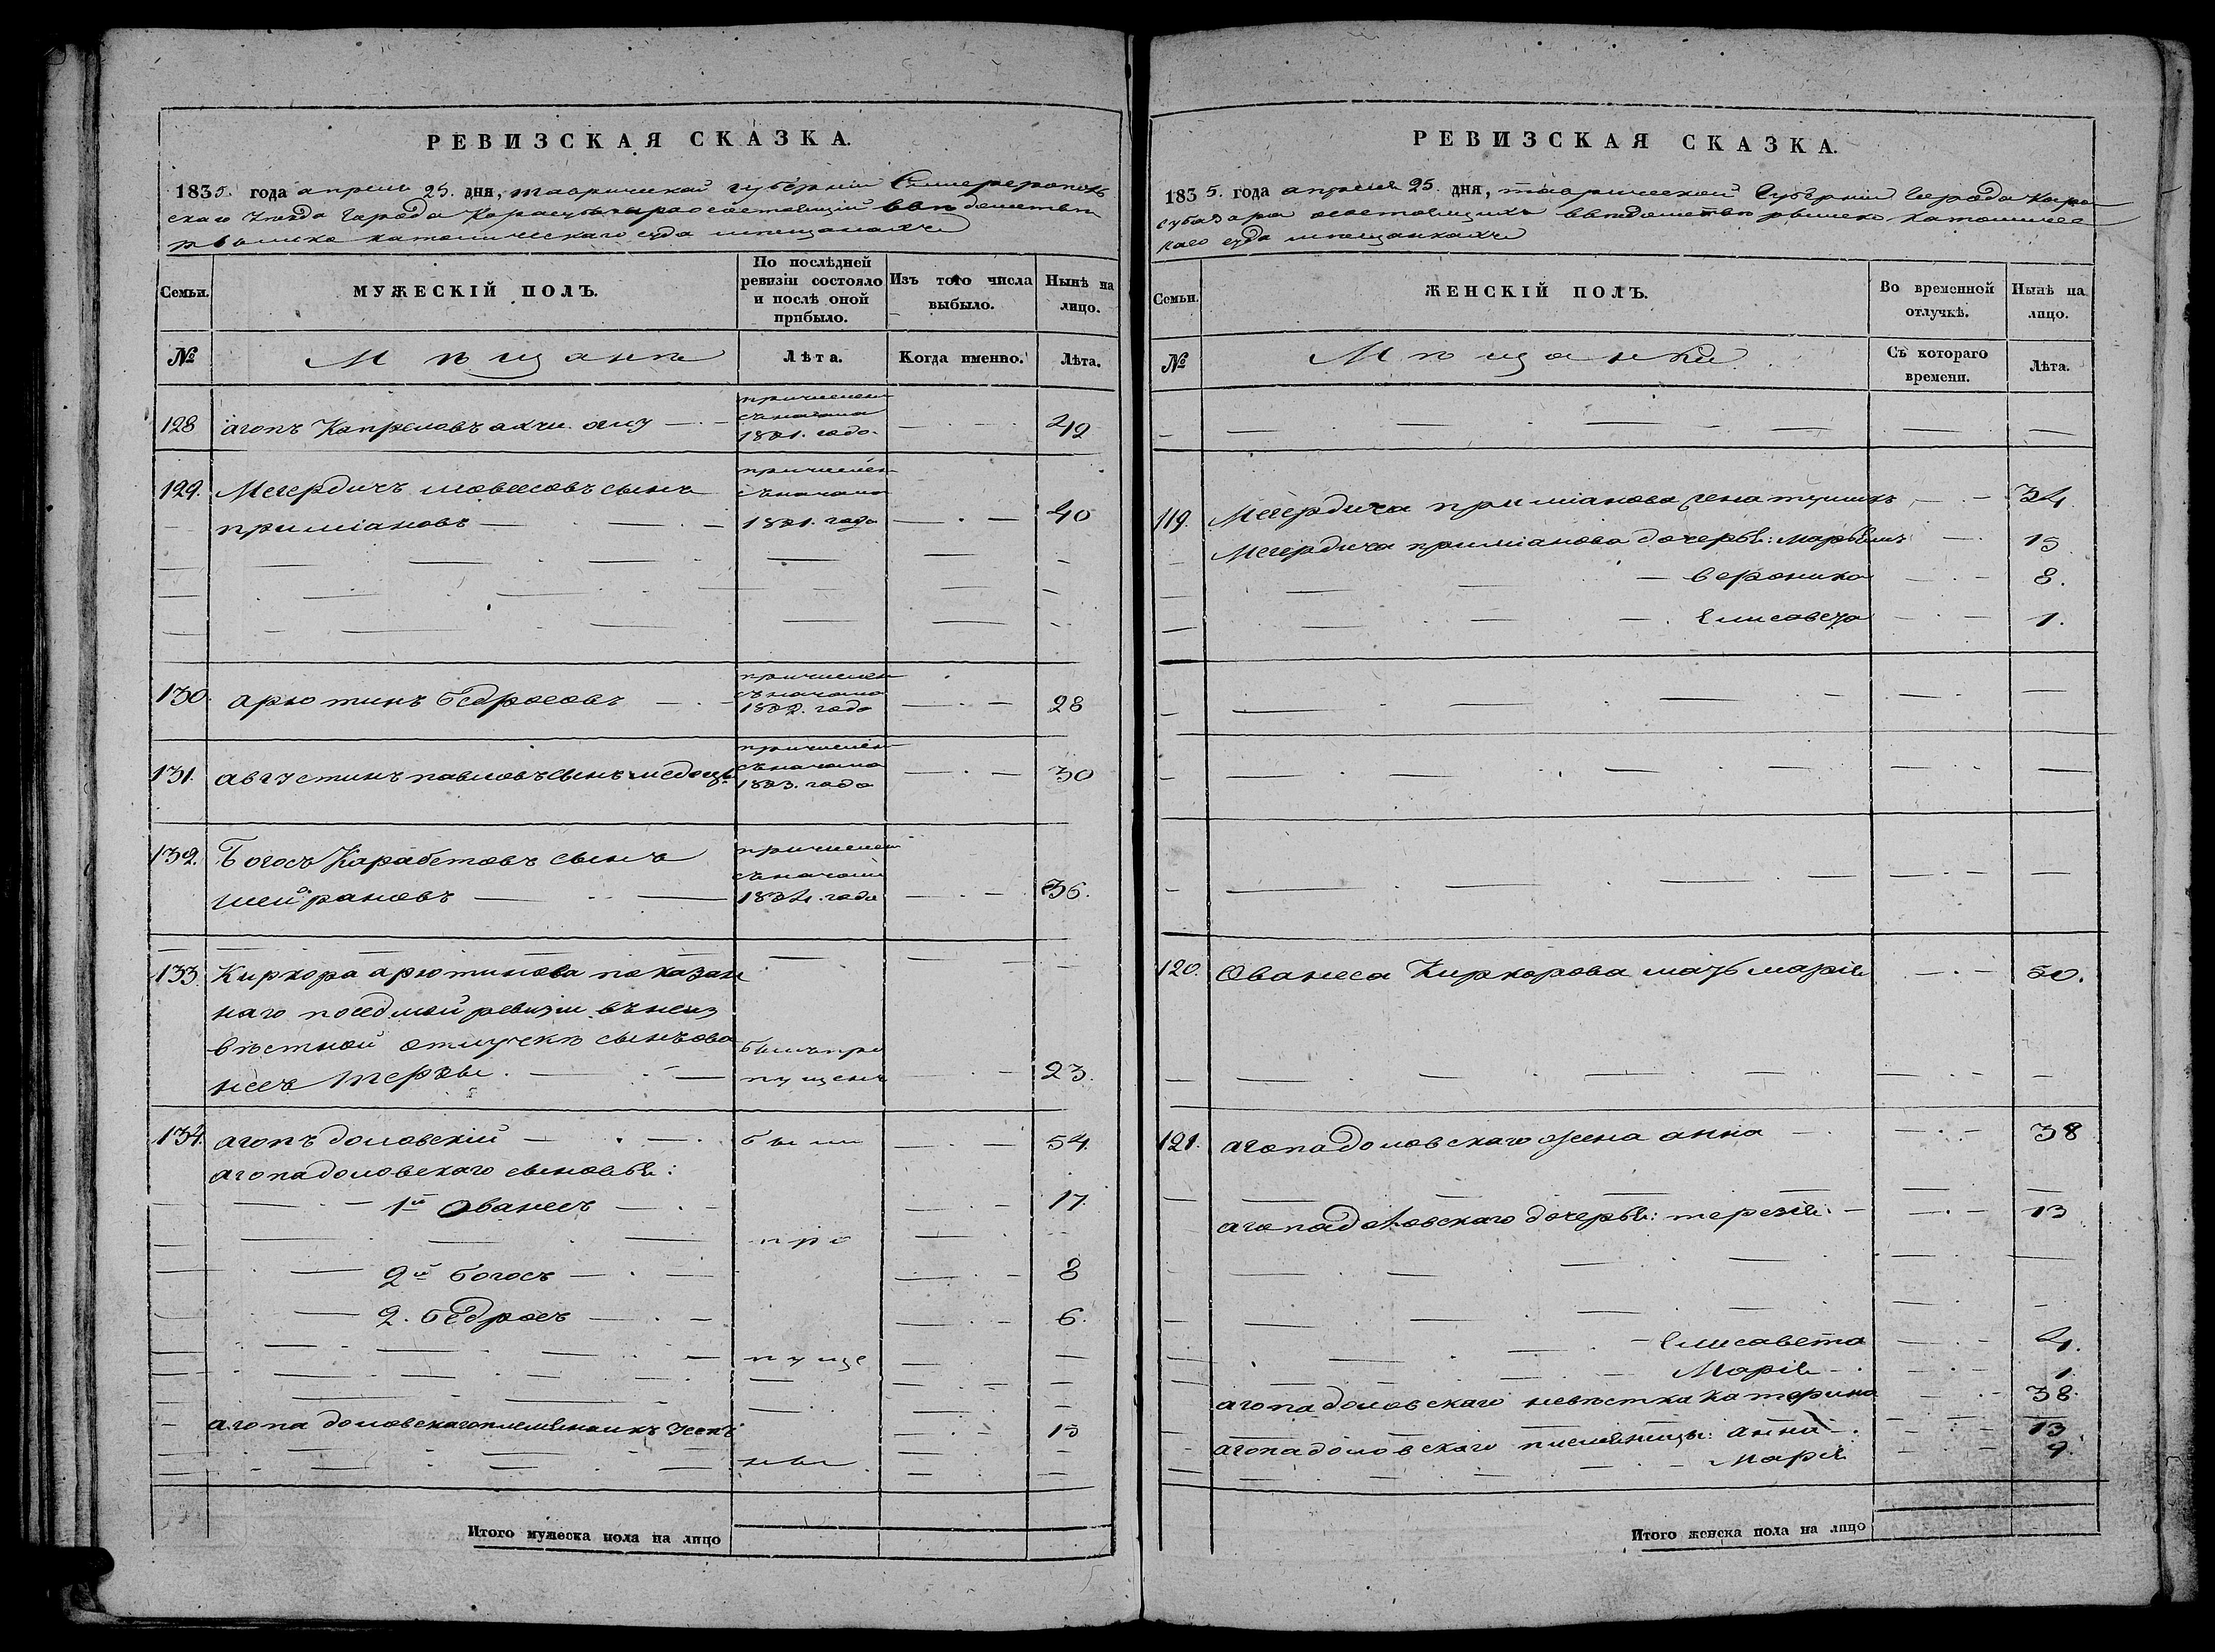 РЕВИЗСКАЯ СКАЗКА.
1835. года апреля 25. дня, таврической губерніи Симферополь
скаго уезда города Карасубазара состоящій ввѣдомствѣ
рымско католическаго суда мѣщанахъ
Семьи.
МУЖЕСКІЙ ПОЛЪ.
По послѣдней
ревизіи состояло
и послѣ оной
прибыло.
Изъ того числа
выбыло.
Нынѣ на
лицо.
№
Мѣщанѣ
Лѣта.
Когда именно.
Лѣта.
причислен
съначала
128 агопъ Капреловъ ахчи оглу 1831. года 42
причислен
129. Мегердичъ мовсесовъ сынъ съначала
примiановъ 1831. года 40
причислен
съначала
130. арютинъ бедросовъ 1832. года 28
причислен
съначала
131. августинъ павловъ сынъ 1833. года 30
132. Богосъ Карабетовъ сынъ причислен
съначала
шейрановъ 1834. года 36.
133. Киркора арютинова показан
наго поседмой ревизіи въ неиз
вѣстной отлучкѣ сынъ ова былъ про
несъ терзы пущенъ 23.
134. агопъ доловскій бы ли 54.
агопа доловскаго сыновья:
1й Ованесъ 17.
про
2й богосъ 8
2. бедросъ 6.
пуще
агопа доловскаго племянникъ 15
ны
Итого мужеска пола на лицо
РЕВИЗСКАЯ СКАЗКА.
1835. года апреля 25. дня, таврической Губерніи города Кара
субазара состоящихъ ввѣдомствѣ рымско католичес
каго суда мѣщанкахъ
Семьи.
ЖЕНСКІЙ ПОЛЪ.
Во временной
отлучкѣ.
Нынѣ на
лицо.
№
Мѣщанки
Съ котораго
времени.
Лѣта.
119. Мегердича примiанова жена 34.
Мегердича примiанова дочерья: марьямъ 15
вероника 8.
Елисавета 1.
120. Ованеса Киркорова мать марiя 50.
121. агопа доловскаго жена анна 38
агопа доловскаго дочерья: терезiя 13
Елисавета 4.
Марiя 1
агопа доловскаго невѣстка катерина 38.
агопа доловскаго племянницы: анна 13
Марiя 9.
Итого женска пола на лицо